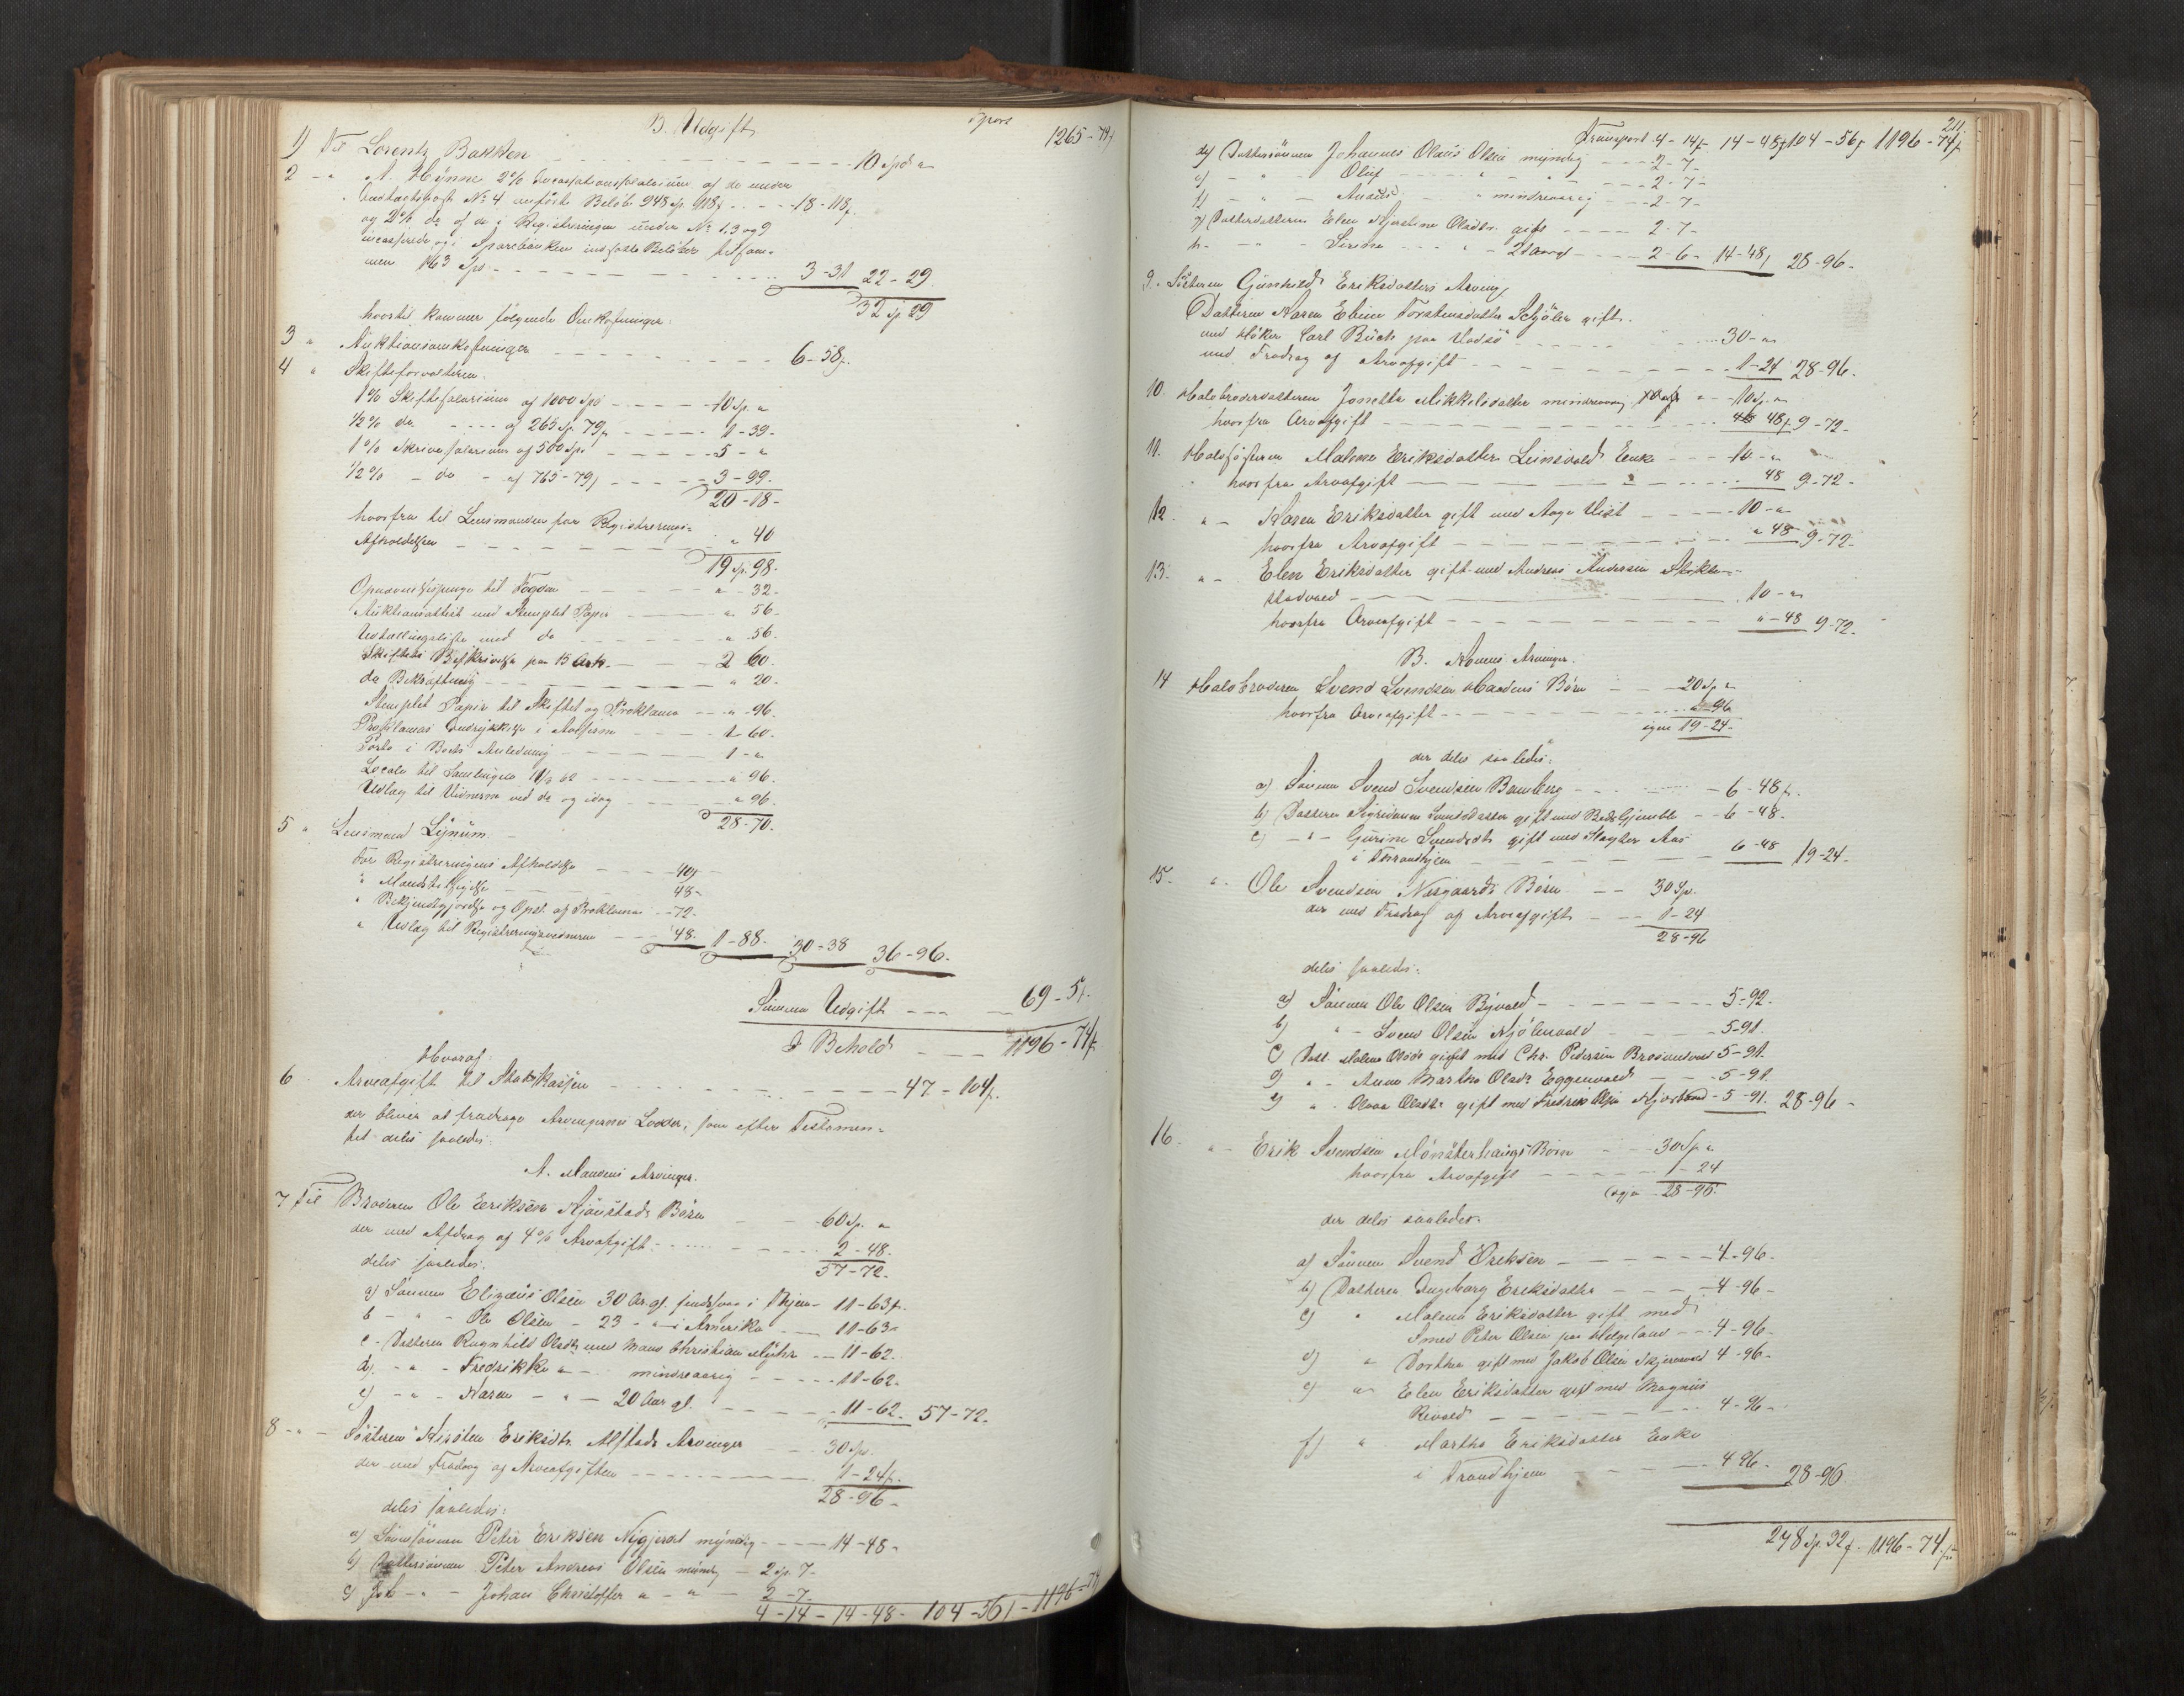 B. Udgift
Sport 1265-79ß
1) Til Lorentz Bakken 10 Spd "
2 - " A. Hÿnne 2% Incassationssalarium af de under
Indtægtspost No 4 anførte Beløb 948 Sp 118ß 18-118ß
og 2% do af de i Registreringen under No 1, 3 og 9
incasserede og i Sparebanken indsatte Beløber tilsam-
men 163 Spd 3-31 22-29
32 Sp 29
hvortil kommer følgende Omkostninger:
3 " Auktionsomkostninger 6-58ß.
4 " Skifteforvalteren.
1% Skiftesalarium af 1000 Spd 10 Sp. "
1/2% do af 265 Sp. 79ß 1-39-
1% Skriversalarium af 500 Sp. 5 - "
1/2% - do - af 765-79ß 3-99.
20-18-
hvorfra til Lensmanden for Registrerings-
Afholdelsen " 40
19 Sp. 98-
til Fogden " - 32-
Auktionsattest med Stemplet Papir " 56-
Udtællingsliste med do " 56.
Skiftets Beskrivelse paa 15 Ark. 2 60.
do Bekræftning " 20-
Stemplet Papir til Skiftet og Proklama " 96-
Proklamas Indrykkelse i Avisen 1 60-
Porto i Boets Anledning 1 - "
Locale til Samlingen " 96.
Udlæg til Vidnerne ved do og idag " 96.
28-70.
5 " Lensmand Lÿnum.
For Registreringens Afholdelse 40ß
" 48-
" Bekjendtgjørelse og Opsl. af Proklama 72-
" Udlæg til Registreringsvidnerne 48. 1-88. 30-38 36-96.
Summa Udgift 69-5ß.
I Behold 1196-74ß
Hvoraf:
6 Arveafgift til Statskassen 47-104ß.
der bliver at fradrage Arvingernes Lodder, som efter Testamen-
tet deles saaledes:
A. Mandens Arvinger.
7 Til Broderen Ole Eriksen Børn 60 Sp. "
der med Afdrag af 4% Arveafgift 2-48.
deles saaledes: 57-72.
a) Sønnen Elizæus Olsen 30 Aar gl. 11-63ß.
b - " - Ole Olsen - 23 - " - i Amerika 11-63-
c - Datteren Ragnhild Olsdtr. med Hans Christian 11-62.
d) - " - Fredrikke " - mindreaarig 11-62.
e) - " - Karen - " - 20 Aar gl. 11-62. 57-72.
8 - " - Søsteren Kirsten Eriksdtr. Alstads Arvinger 30 Sp.
der med Fradrag af Arveafgiften 1-24ß.
28-96-
deles saaledes:
a) Sønnesønnen Peter Eriksen myndig 14-48-
b) Dattersønnen Peter Andreas Olsen myndig 2 Sp. 7-
c) - " - Johan Christoffer " - " 2-7-
4-14-14-48-104-56ß-1196-74
211.
Transport 4-14ß 14-48ß 104-56ß 1196-74ß
d) Dattersønnen Johannes Olaus Olsen myndig 2-7-
e) - " - Oluf 2-7-
f) - " - " mindreaarig 2-7-
g) Datterdatteren Elen Kjerstine Olsdtr. gift 2-7-
h - " - Sirina 21 aarig 2-6- 14-48ß 28-96-
9 - Søsteren Gunhild Eriksdatters Arving,
Datteren Karen Eline Torstensdatter Schjølen gift
med Carl Büch paa Vadsö 30-"
med Fradrag af Arveafgift 1-24 28-96.
10. Halvbroderdatteren Jonetta Mikkelsdatter mindreaarig 10 Sp. "
hvorfra Arveafgift 48ß 9-72-
11. Halvsøsteren Malene Eriksdatter Enke 10-"
hvorfra Arveafgift 48 9-72-
12. " - Karen Eriksdatter gift med Aage Vist 10-"
hvorfra Arveafgift " 48 9-72-
13. " - Elen Eriksdatter gift med Andreas Andersen Stikle-
stadvald 10-"
hvorfra Arveafgift "-48 9-72.
B. Konens Arvinger.
14 Halvbroderen Svend Svendsen Børn 20 Sp "
hvorfra Arveafgift 96
igjen 19-24-
der deles saaledes:
a) Sønnen Svend Svendsen Bamberg 6-48ß.
b) Datteren Svendsdatter gift med 6-48.
c) - " - Gurine Svendsdtr. gift med Aas
i Throndhjem 6-48 19-24-
15. " Ole Svendsen Børn 30 Sp.
der med Fradrag af Arveafgift 1-24
28-96
deles saaledes:
a) Sønnen Ole Olsen Bÿvald 5-92-
b) " - Svend Olsen 5-91.
c) Datt. Malene Olsdtr gift med Chr. Pedersen 5-91.
d) " - Anne Martha Olsdtr Eggenvald 5-91.
e) " - Olava Olsdtr. gift med Fredrik 5-91. 28-96-
16. " - Erik Svendsen Børn 30 Sp "
hvorfra Arveafgift 1-24
igjen 28-96.
der deles saaledes:
a) Sønnen Svend Eriksen 4-96-
b) Datteren Ingeborg Eriksdatter 4-96-
c) " Malena Eriksdatter gift med
Smed Peter Olsen paa Helgeland 4-96-
d) " Dorthea gift med Jakob Olsen 4-96-
e) " Elen Eriksdatter gift med Magnus
4-96-
f) " Martha Eriksdatter Enke
i Trondhjem 4 96- 28-96
248 Sp. 32ß. 1196-74ß